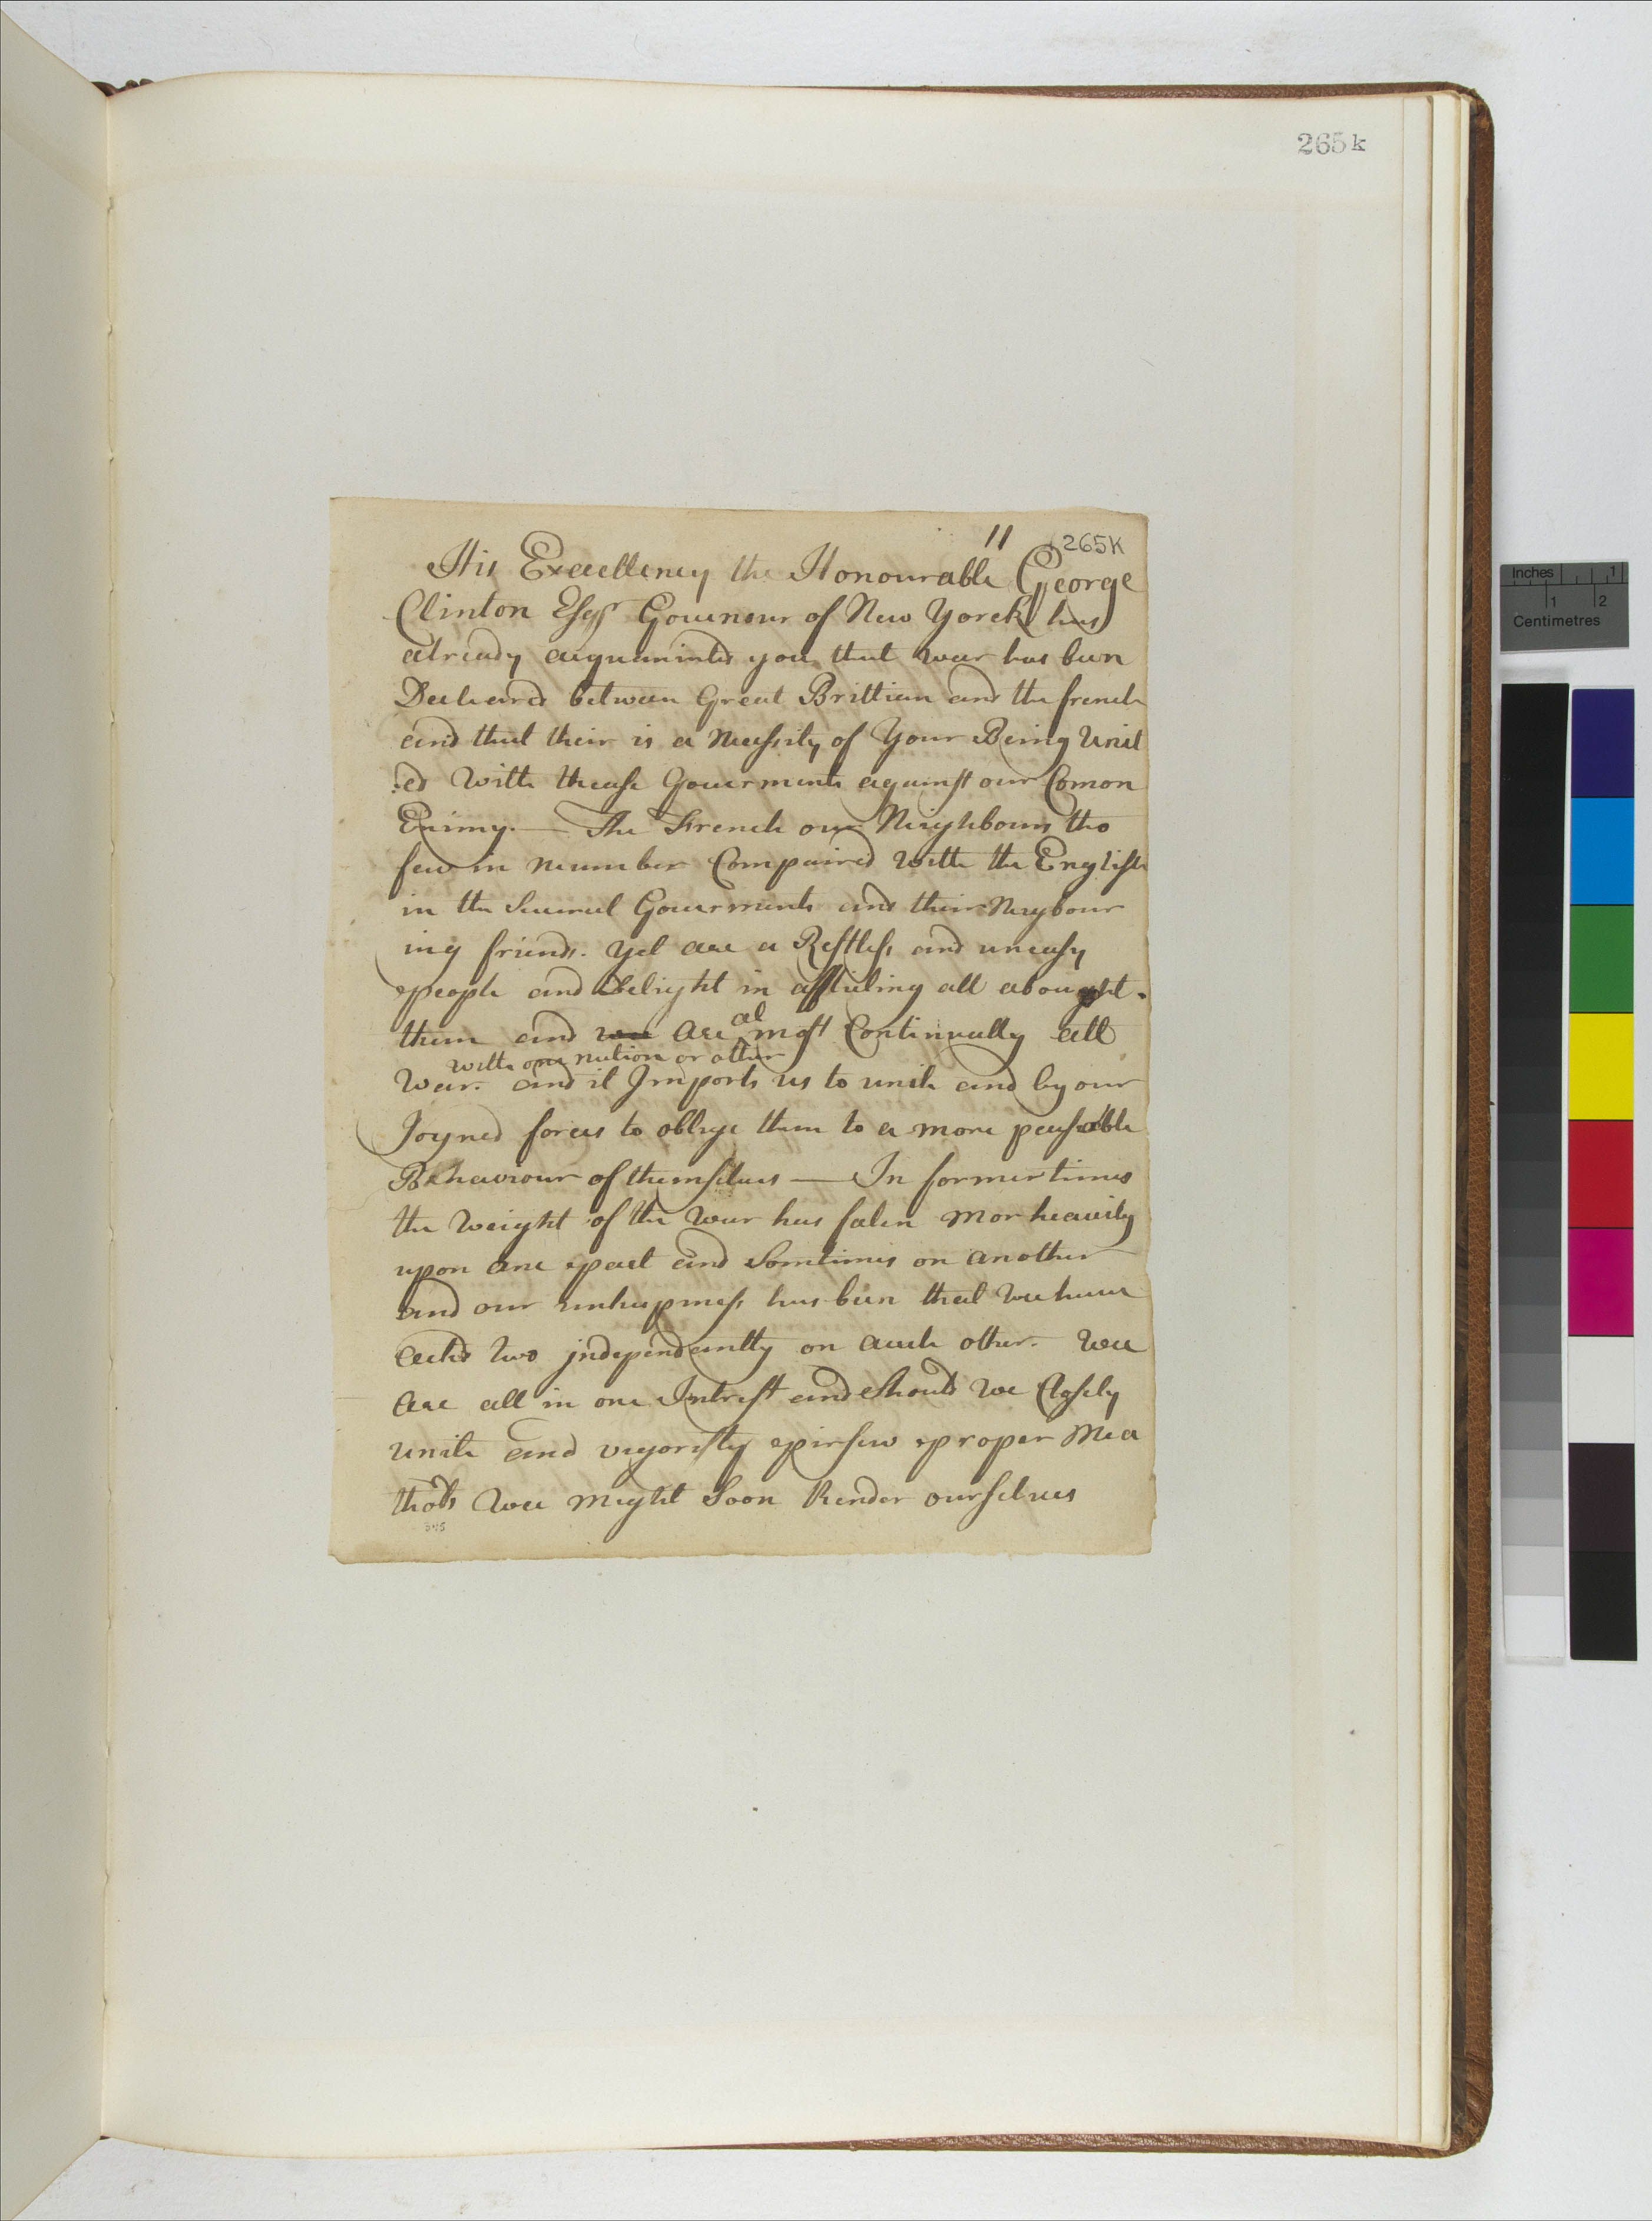 265k
11 265K
His Excellency the Honourable George
Clinton Esqr Gouernour of New Yorck has
already aquainted you that war has bun
Decleared between Great Brittian and the french
and that their is a Necessity of Your Being Unit
:ed With thease Gouerments against our Comon
Enimy. — The French our Neighbours tho
few in number Compaired With the English
in the Seueral Gouerments and their Neybour
ing friends. yet are a Restless and uneasy
people and Delight in afflicting all abought
them and wee are almost Continually att
with one nation or other
War. and it Imports us to unite and by our
Joyned forces to oblige them to a more peasable
Behaviour of themselues — In former times
the Weight of the War has falen mor heauily
upon one part and Somtimes on another
and our unhappiness has been that Wee haue
acted two independantly on each other. Wee
are all in one Intrest and Should we Closely
unite and vigoristly pirsew proper Mea
thods Wee might Soon Render ourselves
345
Inches 1
1 2
Centimetres